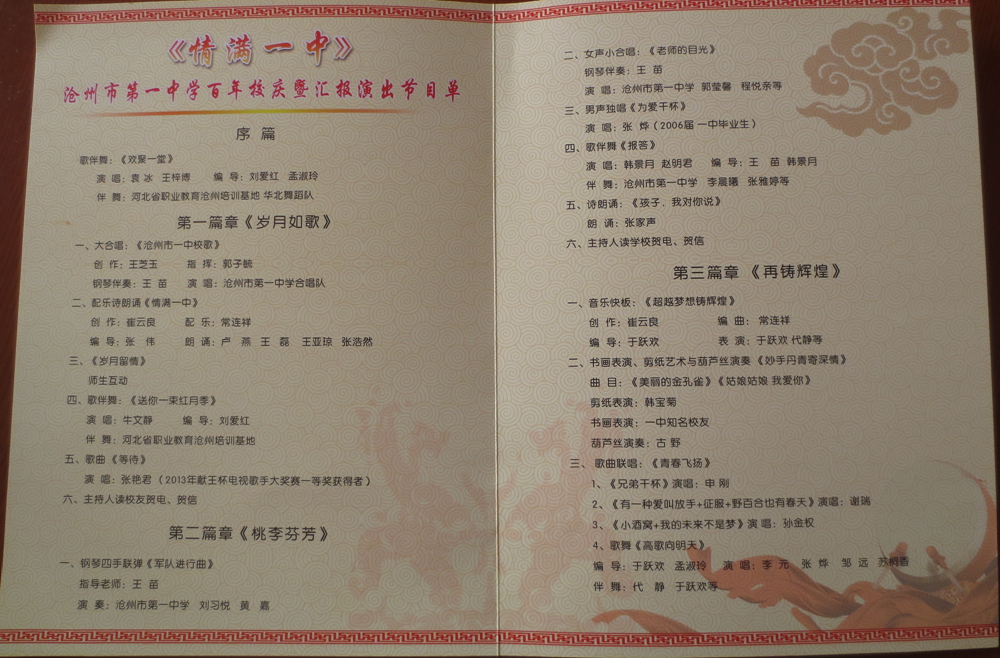 《情满一中》
沧州市第一中学百年校庆暨汇报演出节目单
序 篇
歌伴舞：《欢聚一堂》
演 唱：袁 冰 王梓傅 编 导：刘爱红 孟淑玲
伴 舞：河北省职业教育沧州培训基地 华北舞蹈队
第一篇章《岁月如歌》
一、大合唱：《沧州市一中校歌》
创 作：王芝玉 指 挥：郭子毓
钢琴伴奏：王 苗 演 唱：沧州市第一中学合唱队
二、配乐诗朗诵《情满一中》
创 作：崔云良 配 乐：常连祥
编 导：张 伟 朗 诵：卢 燕 王 磊 王亚琼 张浩然
三、《岁月留情》
师生互动
四、歌伴舞：《送你一束红月季》
演 唱：牛文静 编 导：刘爱红
伴 舞：河北省职业教育沧州培训基地
五、歌曲《等待》
演 唱：张艳君（2013年献王杯电视歌手大奖赛一等奖获得者）
六、主持人读校友贺电、贺信
第二篇章《桃李芬芳》
一、钢琴四手联弹《军队进行曲》
指导老师：王 苗
演 奏：沧州市第一中学 刘习悦 黄 嘉
二、女声小合唱：《老师的目光》
钢琴伴奏：王 苗
演 唱：沧州市第一中学 郭莹馨 程悦亲等
三、男声独唱《为爱干杯》
演 唱：张 烨（2006届 一中毕业生）
四、歌伴舞《报答》
演 唱：韩景月 赵明君 编 导：王 苗 韩景月
伴 舞：沧州市第一中学 李晨曦 张雅婷等
五、诗朗诵：《孩子，我对你说》
朗 诵：张家声
六、主持人读学校贺电、贺信
第三篇章《再铸辉煌》
一、音乐快板：《超越梦想铸辉煌》
创 作：崔云良 编 曲：常连祥
编 导：于跃欢 表 演：于跃欢 代静等
二、书画表演、剪纸艺术与葫芦丝演奏《妙手丹青寄深情》
曲 目：《美丽的金孔雀》《姑娘姑娘 我爱你》
剪纸表演：韩宝菊
书画表演：一中知名校友
葫芦丝演奏：古 野
三、歌曲联唱：《青春飞扬》
1、《兄弟干杯》演唱：申 刚
2、《有一种爱叫放手+征服+野百合也有春天》演唱：谢瑞
3、《小酒窝+我的未来不是梦》演 唱：孙金权
4、歌舞《高歌向明天》
编 导：于跃欢 孟淑玲 演 唱：李 元 张 烨 邹 远 苏桐香
伴 舞：代 静 于跃欢等